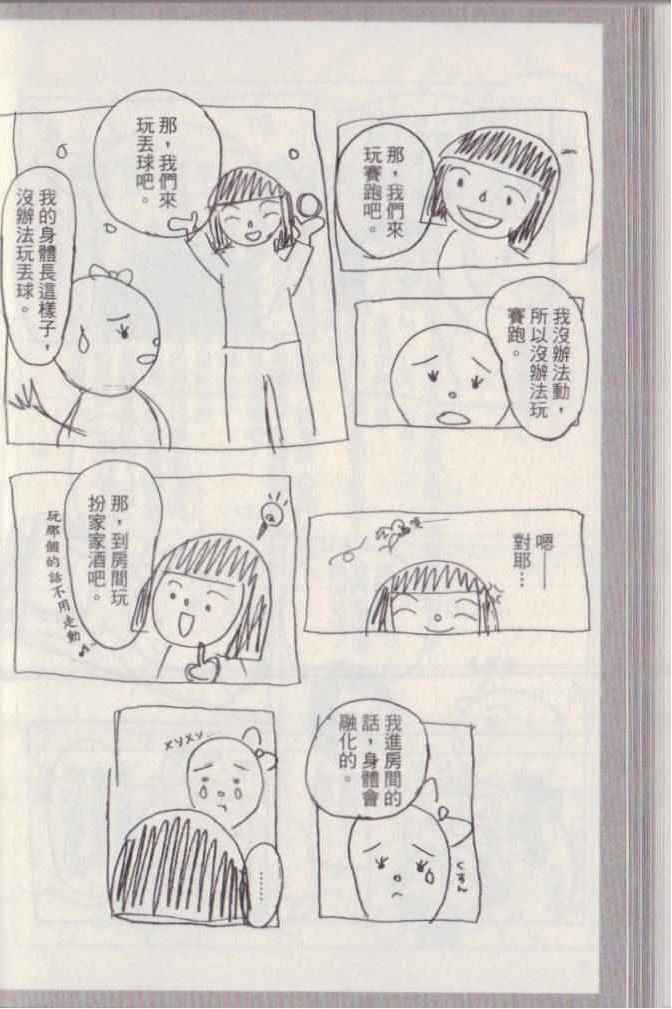 那，我們來
玩賽跑吧。
我沒辦法動，
所以沒辦法玩
賽跑。
那，我們來
玩丟球吧。
我的身體長這樣子，
沒辦法玩丟球。
嗯——
對耶…
那，到房間玩
扮家家酒吧。
玩那個的話不用走動♪
我進房間的
話，身體會
融化的。
くすん
……